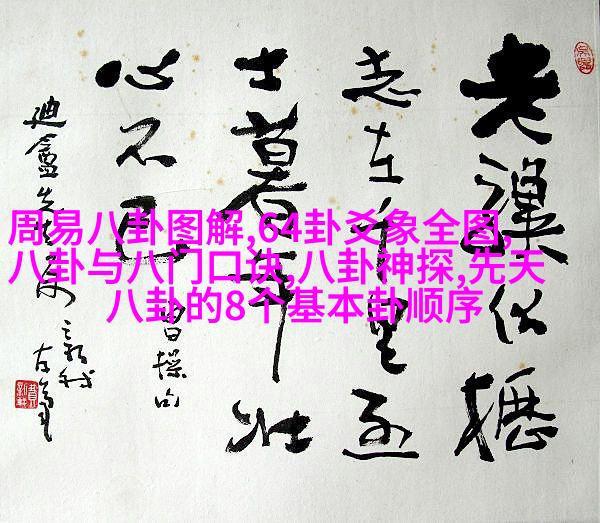 周易八卦图解,64卦爻象全图,
八卦与八门口诀,八卦神探,先天
八卦的8个基本卦顺序
老伏櫪
志在千里烈
士暮年壮
心不已
曹操句